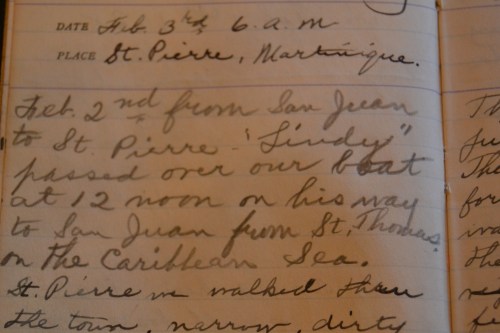 DATE Feb. 3rd 6 a.m
PLACE St. Pierre, Martinique.
Feb. 2nd from San Juan
to St. Pierre - "Lindy"
passed over our boat
at 12 noon on his way
to San Juan from St. Thomas.
on the Caribbean Sea.
St. Pierre we walked thru
the town, narrow, dirty